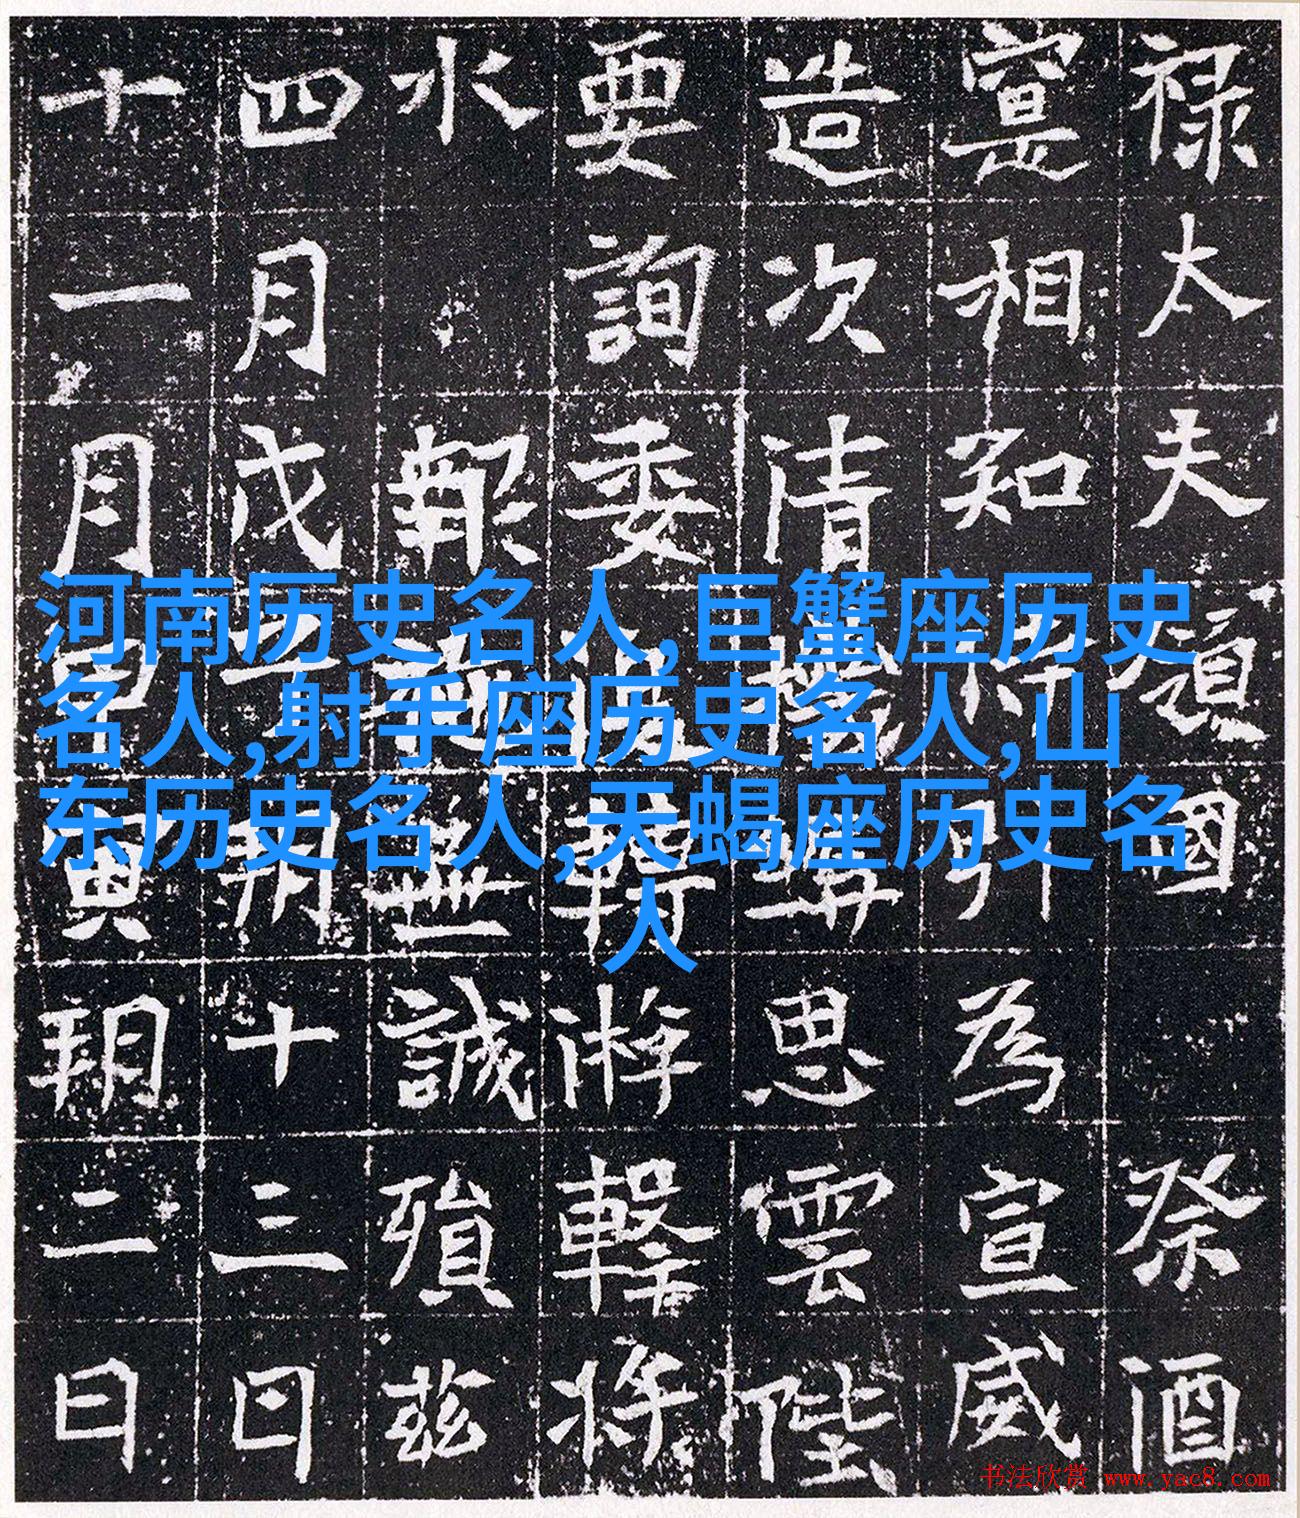 河南历史名人,巨蟹座历史
名人,射手座历史名人,山
东历史名人,天蝎座历史名
人
禄太夫領國 祭酒
寔相知引為宣威
造次清思雲陛
要詢委游擊將
水 報無誠殞茲
四月戊朔十三日
十一月寅朔二日
书法欣赏 www.yac8.com